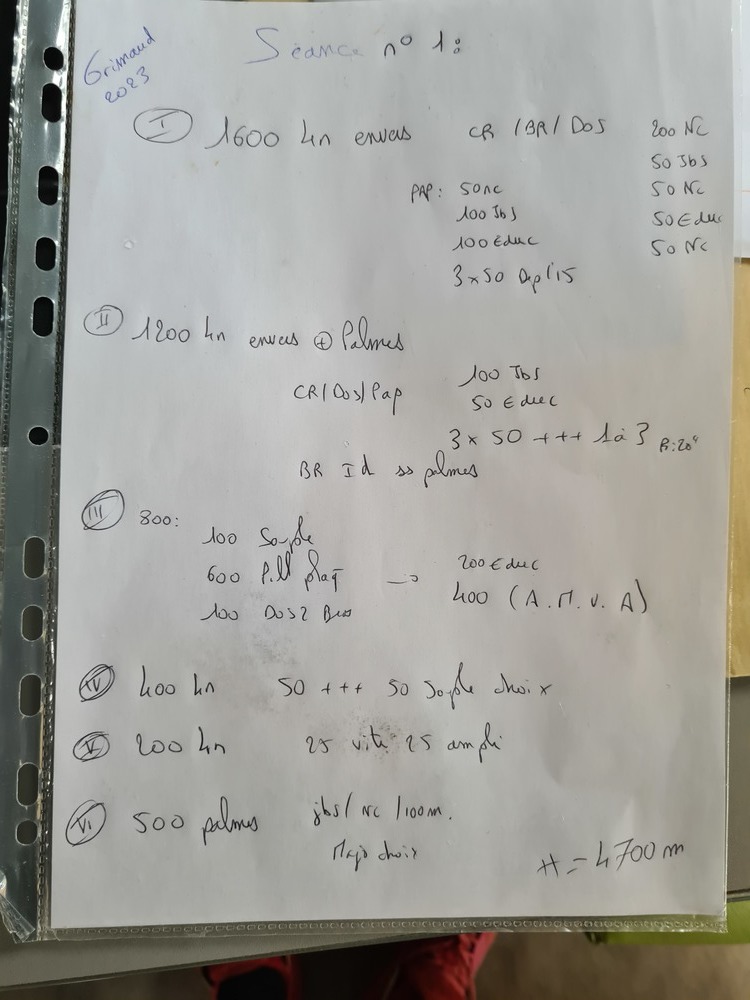 Grimaud
2023
Séance n° 1:
I 1600 4n envers CR / BR / DOS 200 NC
50 Jbs
PAP: 50nc 50 NC
100 Jbs 50 Educ
100 Educ 50 NC
3x50 Dep/15
II 1200 4n envers + Palmes
CR/Dos/Pap 100 Jbs
50 Educ
3 x 50 +++ 1 à 3 R:20"
BR Id ss palmes
III 800:
100 Souple
600 Pull plaq → 200 Educ
400 (A.M.V.A)
100 Dos 2 Bras
IV 400 4n 50 +++ 50 Souple choix
V 200 4n 25 vite 25 ampli
VI 500 palmes jbs / NC /100m.
Majo choix
= 4700 m